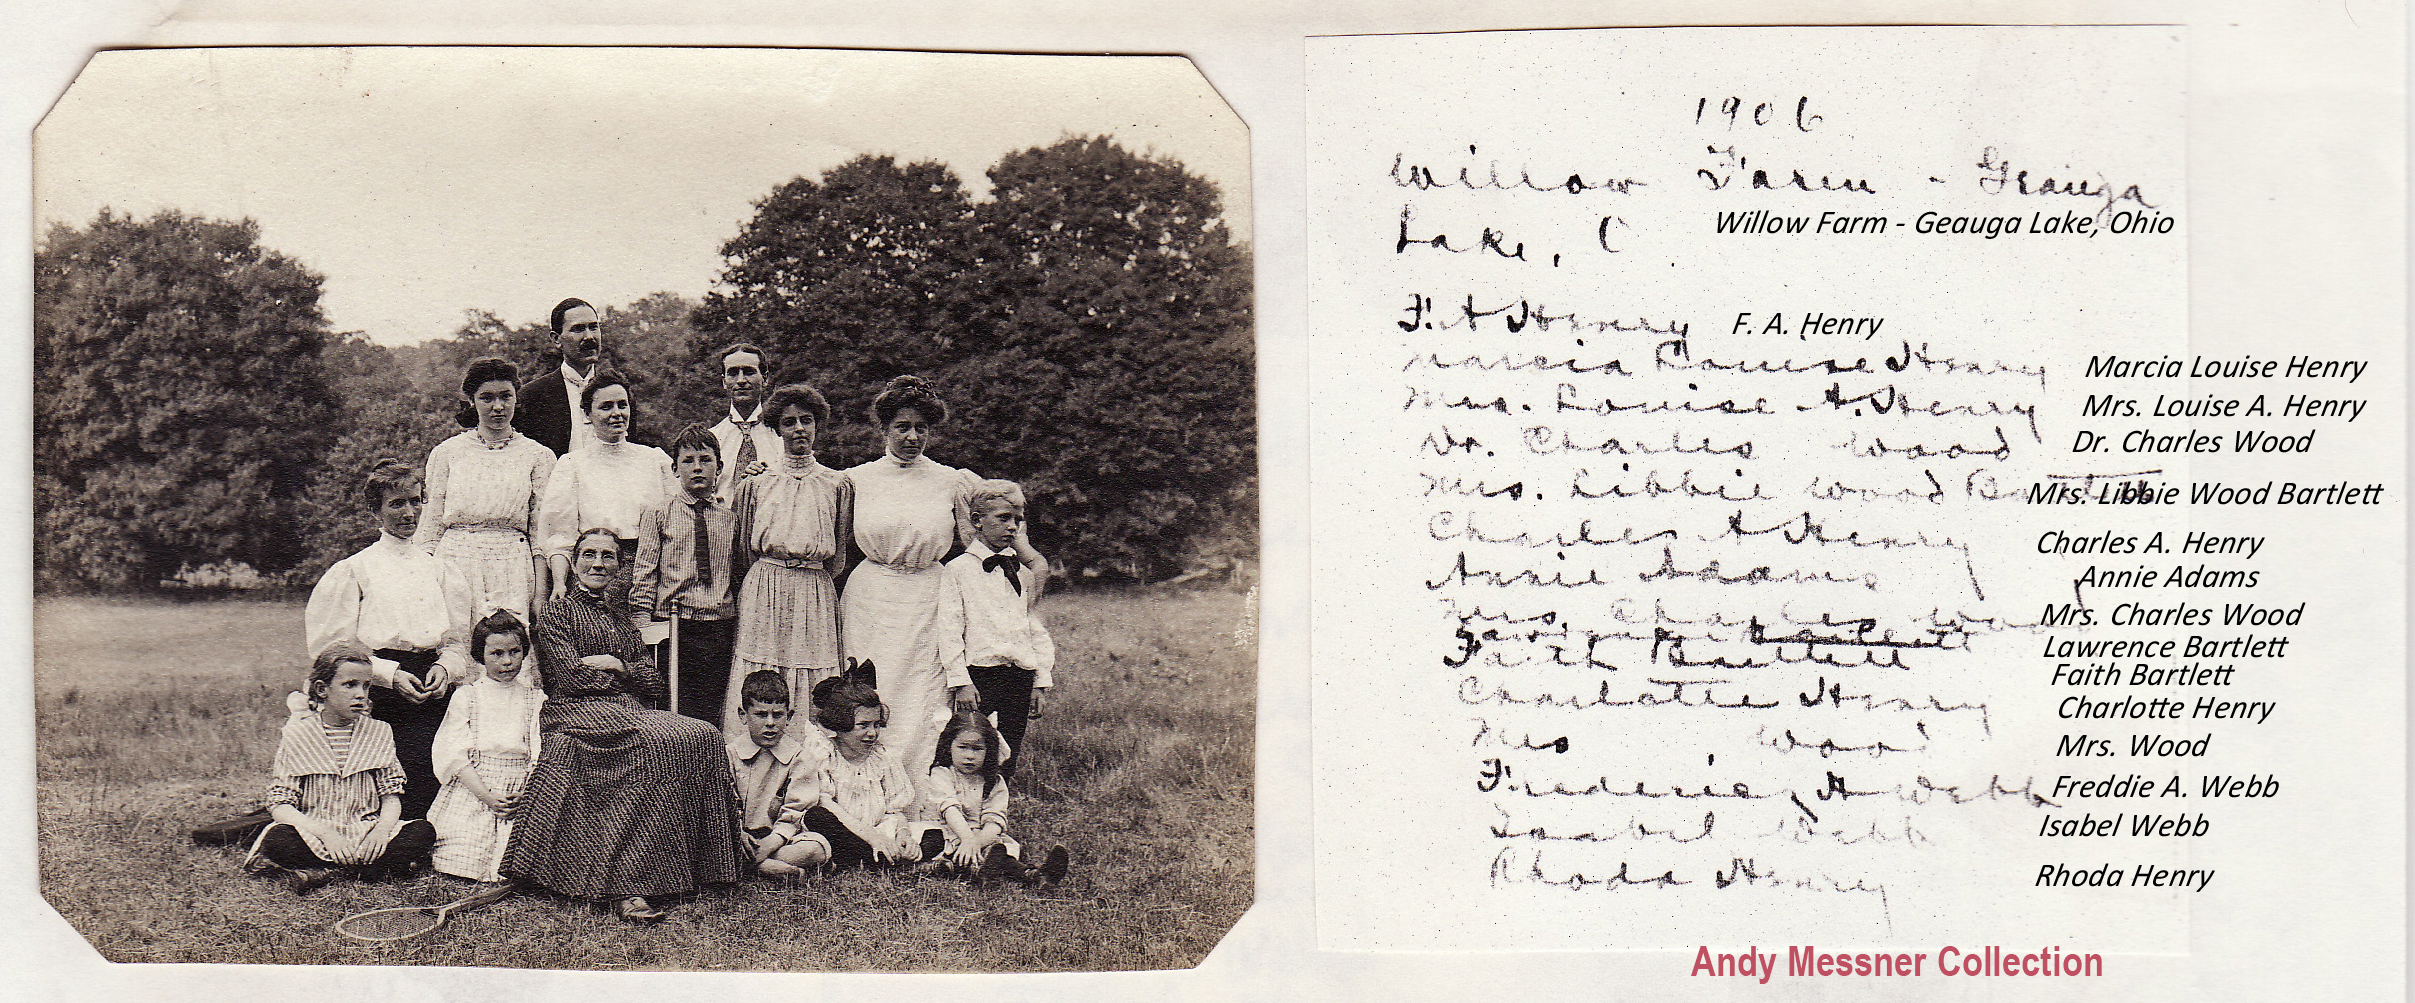 1906
Willow Farm - Geauga
Willow Farm - Geauga Lake, Ohio
Lake, O
F. A Henry F. A. Henry
Marcia Louise Henry Marcia Louise Henry
Mrs. Louise A. Henry Mrs. Louise A. Henry
Dr. Charles Wood Dr. Charles Wood
Mrs. Libbie Wood Bartlett Mrs. Libbie Wood Bartlett
Charles A Henry Charles A. Henry
Annie Adams Annie Adams
Mrs. Charles Wood Mrs. Charles Wood
Lawrence Bartlett Lawrence Bartlett
Faith Bartlett Faith Bartlett
Charlotte Henry Charlotte Henry
Mrs Wood Mrs. Wood
A Webb Freddie A. Webb
Isabel Webb Isabel Webb
Rhoda Henry Rhoda Henry
Andy Messner Collection